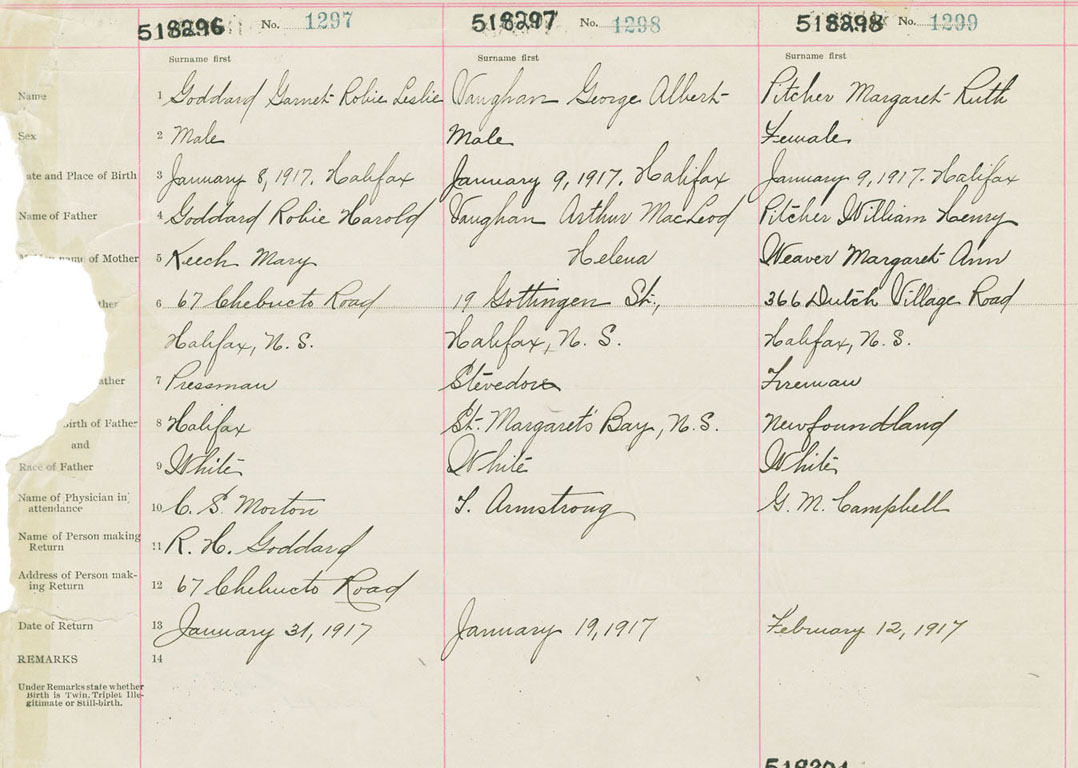 518296 No. 1297 518297 No. 1298 518298 No. 1299
Surname first Surname first Surname first
Name 1 Goddard Garnet Robie Leslie Vaughan George Albert Pitcher Margaret Ruth
Sex 2 Male Male Female
ate and Place of Birth 3 January 8, 1917. Halifax January 9, 1917. Halifax January 9, 1917. Halifax
Name of Father 4 Goddard Robie Harold Vaughan Arthur MacLeod Pitcher William Henry
name of Mother 5 Keech Mary Helena Weaver Margaret Ann
ther 6 67 Chebucto Road 19 Gottingen St., 366 Dutch Village Road
Halifax, N. S. Halifax, N. S. Halifax, N. S.
ather 7 Pressman Stevedore Fireman
irth of Father 8 Halifax St. Margaret's Bay, N.S. Newfoundland
and
Race of Father 9 White White White
Name of Physician in attendance 10 C. S. Morton T. Armstrong G. M. Campbell
Name of Person making Return 11 R. H. Goddard
Address of Person mak-ing Return 12 67 Chebucto Road
Date of Return 13 January 31, 1917 January 19, 1917 February 12, 1917
REMARKS 14
Under Remarks state whether
Birth is Twin, Triplet Ille-
gitimate or Still-birth.